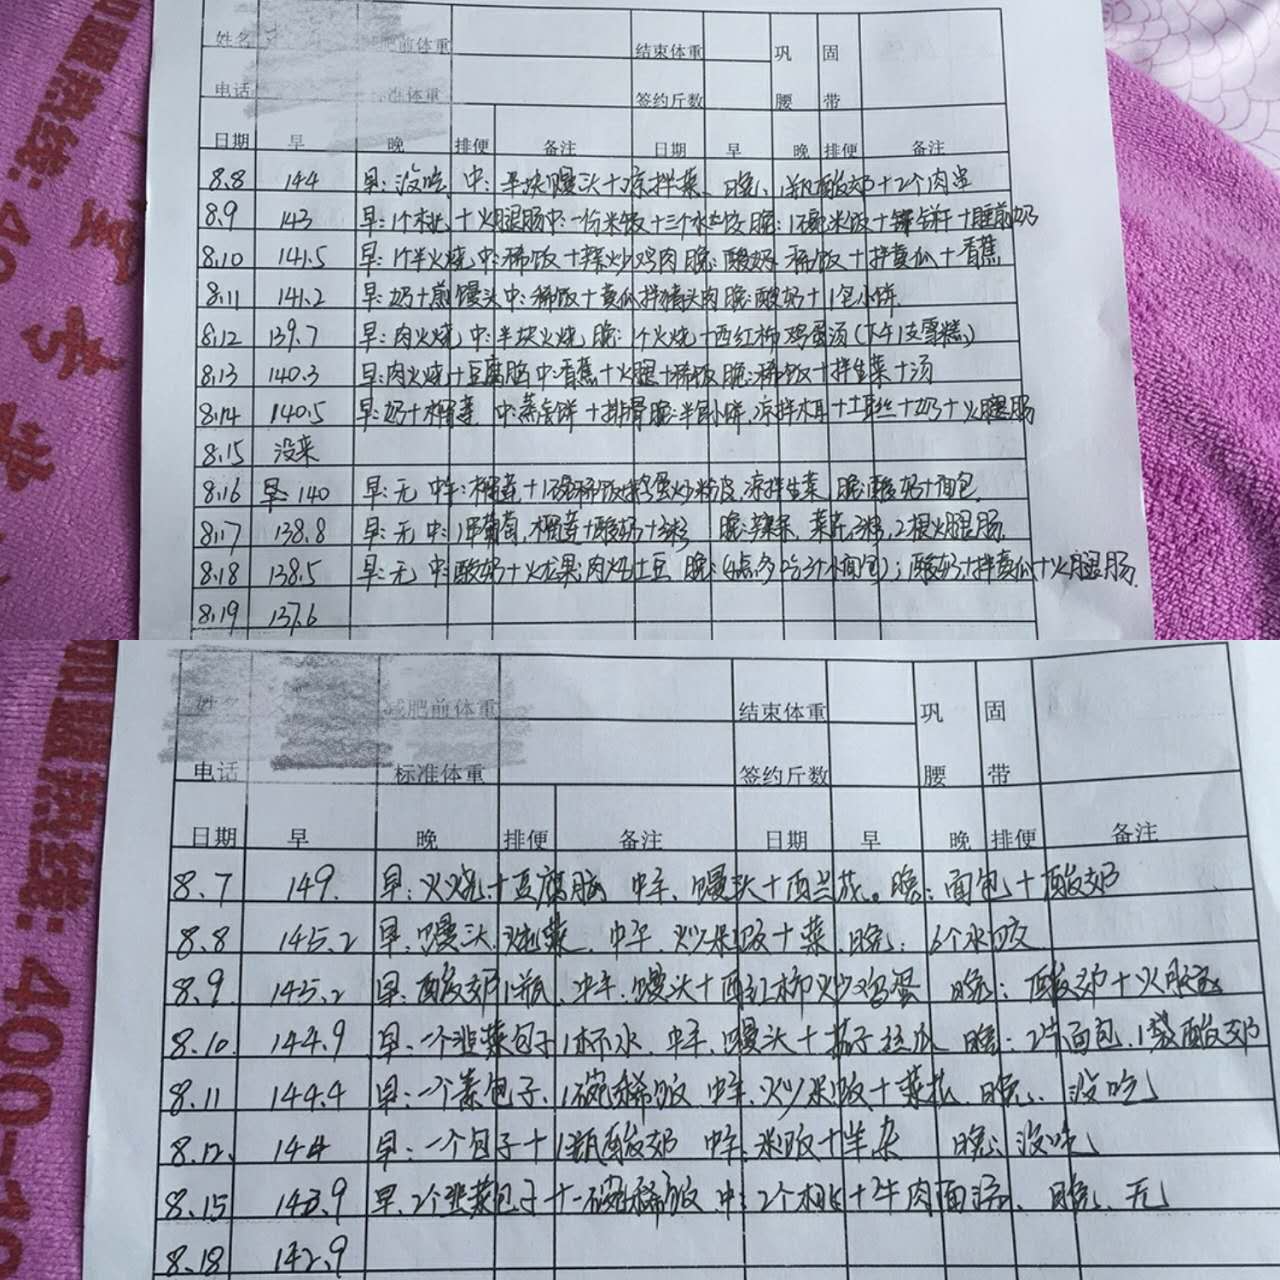 姓名 减肥前体重 结束体重 巩 固
电话 标准体重 签约斤数 腰 带
日期 早 晚 排便 备注 日期 早 晚 排便 备注
8.8 144 早:没吃 中:半块馒头+凉拌菜、晚、1瓶酸奶+2个肉
8.9 143 早:1个桃 +火腿肠中:一份米饭+三个水饺 晚:1碗米饭+饼+睡前奶
8.10 141.5 早:1个半火烧 中:稀饭+辣炒鸡肉 晚:酸奶 稀饭+拌黄瓜+香蕉
8.11 141.2 早:奶+煎馒头 中:稀饭+黄瓜拌猪头肉 晚:酸奶+1包小饼
8.12 139.7 早:肉火烧 中:半块火烧 晚:1个火烧+西红柿鸡蛋汤(下午1支雪糕)
8.13 140.3 早:肉火烧+豆腐脑 中:香蕉+火腿+稀饭 晚:稀饭+拌生菜+汤
8.14 140.5 早:奶+榴莲 中:蒸饼+排骨 晚:半个小饼,凉拌木耳+土豆丝+奶+火腿肠
8.15 没来
8.16 早:140 早:无 中午:榴莲+1碗稀饭+鸡蛋炒粉皮,凉拌生菜 晚:酸奶+面包
8.17 138.8 早:无 中:葡萄,榴莲+酸奶+粥 晚:菜花粥,2根火腿肠
8.18 138.5 早:无 中:酸奶+火龙果,肉炖土豆 晚:(4点多吃3个小面包);1酸奶+拌黄瓜+火腿肠
8.19 137.6
姓名 减肥前体重 结束体重 巩 固
电话 标准体重 签约斤数 腰 带
日期 早 晚 排便 备注 日期 早 晚 排便 备注
8.7 149. 早:火烧+豆腐脑 中午、馒头+西兰花。晚:面包+酸奶
8.8 145.2 早:馒头、炖菜、中午、炒米饭+菜、晚:6个水饺
8.9 145.2 早:酸奶1瓶、中午、馒头+西红柿炒鸡蛋 晚:酸奶+火腿
8.10 144.9 早:一个韭菜包子1杯水、中午、馒头+茄子丝瓜 晚:2片面包、1袋酸奶
8.11 144.4 早:一个素包子、1碗稀饭 中午、炒米饭+菜花、晚、没吃
8.12 144 早:一个包子+1瓶酸奶 中午、米饭+羊杂 晚:没吃
8.15 143.9 早、2个韭菜包子+一碗稀饭 中:2个桃+牛肉面汤、晚、无
8.18 142.9
加盟热线:400-10